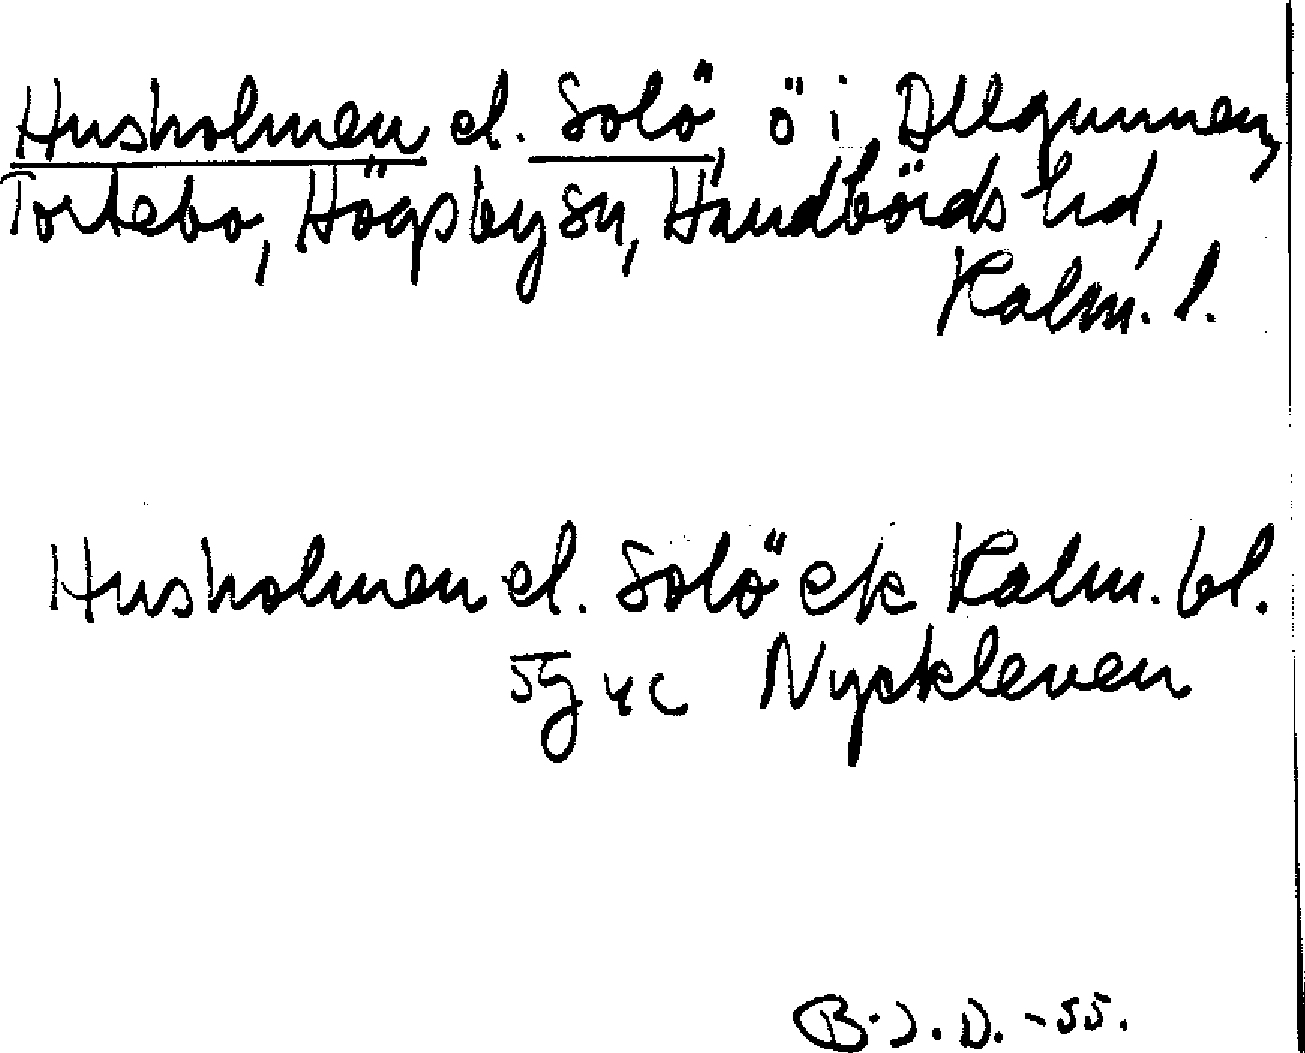 Husholmen el. Solö, ö i Allgunnen,
Tortebo, Högsby sn, Handbörds hd,
Kalm. l.
Husholmen el. Solö ek Kalm. bl.
5g 4c Nyckleven
B.J.D. -55.